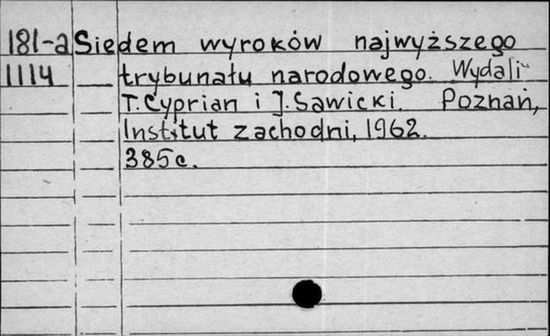 181-a Siedem wyroków najwyższego
1114 trybunału narodowego. Wydali
T. Cyprian i J. Sawicki. Poznań,
Institut zachodni, 1962.
385c.